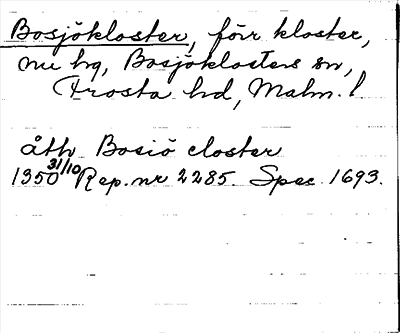 Bosjökloster, förr kloster,
nu hg, Bosjöklosters sn,
Frosta hd, Malm. l.
åtb Bosiö closter
1350 31/10 Rep. nr 2285. Spec. 1693.